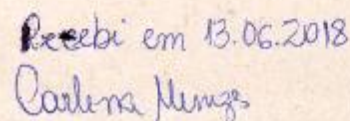 Recebi em 13.06.2018
Carlena Menzes